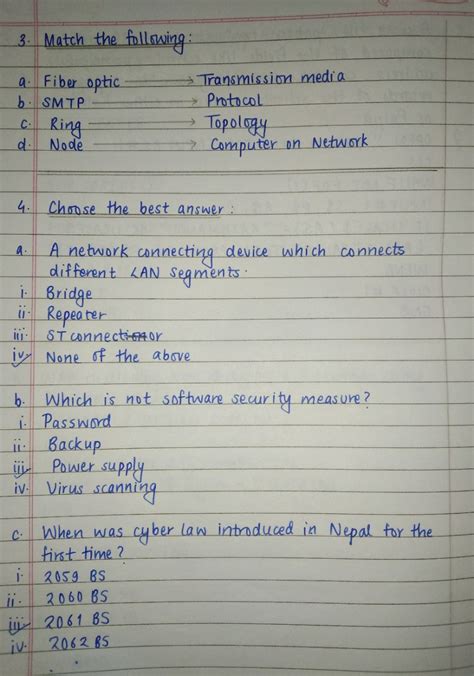 3. Match the following:
a. Fiber optic → Transmission media
b. SMTP → Protocol
c. Ring → Topology
d. Node → Computer on Network
4. Choose the best answer:
a. A network connecting device which connects
different LAN segments.
i. Bridge
ii. Repeater
iii. ST connector
iv. None of the above
b. Which is not software security measure?
i. Password
ii. Backup
iii. Power supply
iv. Virus scanning
c. When was cyber law introduced in Nepal for the
first time?
i. 2059 BS
ii. 2060 BS
iii. 2061 BS
iv. 2062 BS